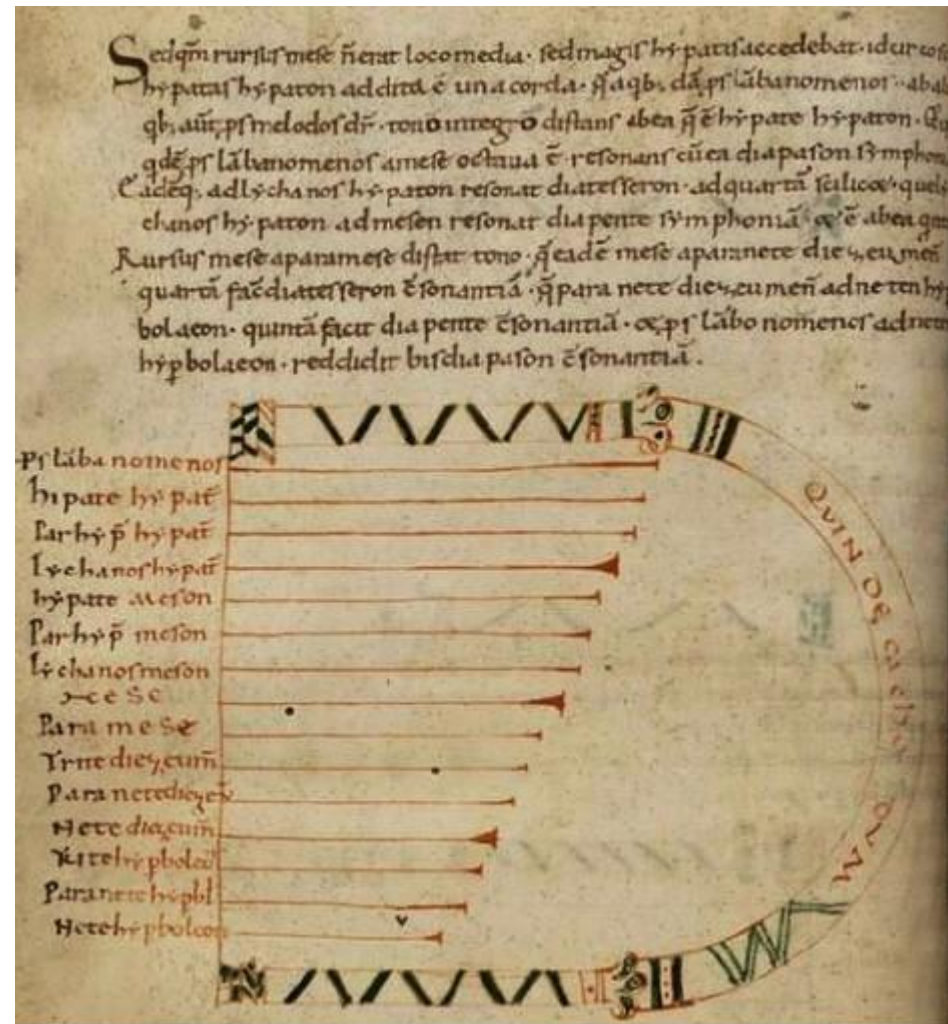 Sedqm̄ rursus mese n̄ erat loco media· sed magis hypatis accedebat· idcirco
hypatas hypaton addita ē una corda· q̄ a qb; dā ps lābanomenos·
qb; aūt ps melodos dr̄· tono integro distans ab ea q̄ ē hypate hypaton·
qdē ps lābanomenos a mese octaua ē· resonans cū ea diapason symphon
Eadēq; ad lychanos hypaton resonat diatesseron· ad quartā scilicet· que ly
chanos hypaton ad mesen resonat diapente symphoniā· & ē ab ea
Rursus mese a paramese distat tono· q̄ eadē mese a paranete diezeumen̄
quartā fac̄ diatesseron c̄sonantiā· q̄ paranete diezeumen̄ ad neten hy
bolaeon· quintā facit diapente c̄sonantiā· & ps lābonomenos ad nete
hyp̄bolaeon· reddidit bisdiapason c̄sonantiā.
Ps lābanomenos
hipate hypat̄
Parhyp̄ hypat̄
Lychanos hypat̄
hypate meson
Parhyp̄ meson
Lychanos meson
Mese
Paramese
Trite diezeum̄
Paranete diezeū
Nete diezeum̄
Trite hypboleū
Paranete hypbl
Nete hypboleon
QVIN DE CI CHOR DVM